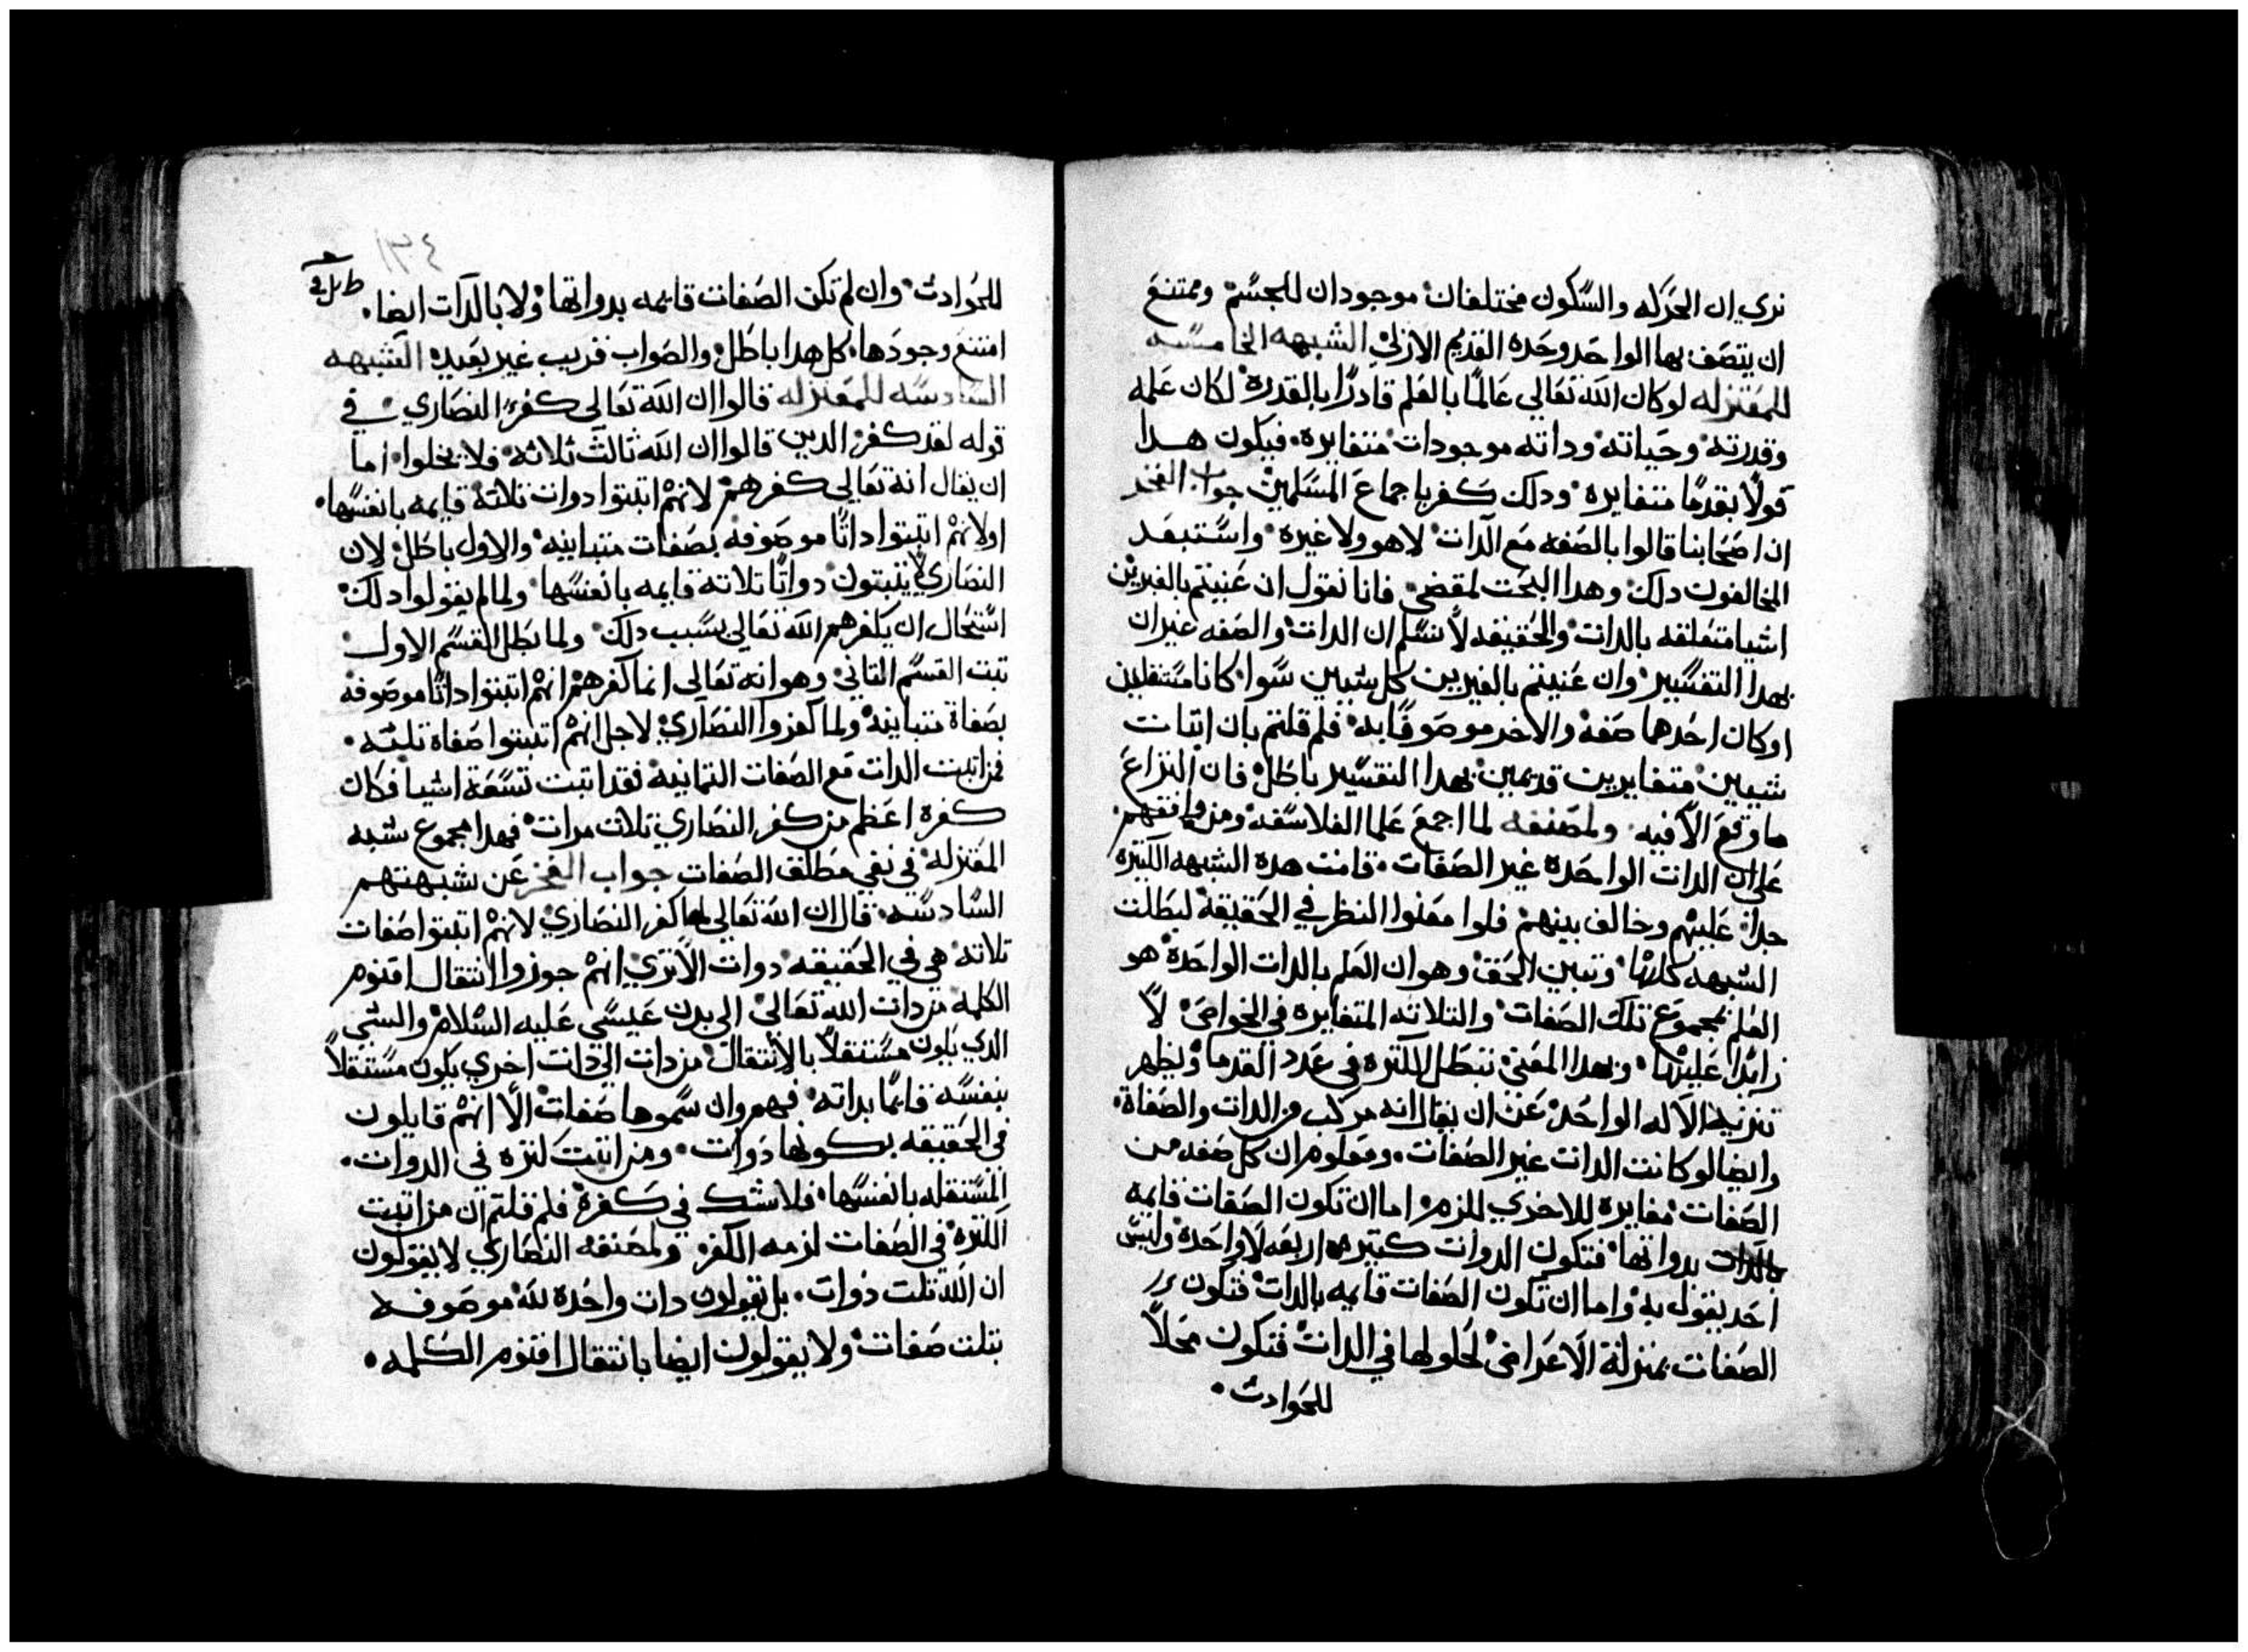 نري ان الحركه والسكون مختلفان موجودان للجسم وممتنع
ان يتصف بها الواحد وحده القديم الازلي الشبهه الخامسه
للمعتزله لو كان الله تعالي عالما بالعلم قادرا بالقدره لكان علمه
وقدرته وحياته وداته موجودات متغايره فيكون هدا
قولا بقدما متغايره ودلك كفر باجماع المسلمين جواب الفخر
ان اصحابنا قالوا بالصفه مع الدات لا هو ولا غيره واستبعد
المخالفون دلك وهدا البحت لمقضي فانا نقول ان عنيتم بالغيرين
اشيا متعلقه بالدات والحقيقه لا نسلم ان الدات والصفه غيران
بهدا التفسير وان عنيتم بالغيرين كل شييين سوا كانا مستقلين
او كان احدهما صفه والاخر موصوفا به فلم قلتم بان اتبات
شييين متغايرين قديمين بهدا التفسير باطل فان النزاع
ما وقع الا فيه ولمصنفه لما اجمع علما الفلاسفه ومن وافقهم
علي ان الدات الواحده غير الصفات قامت هده الشبهه الكتيره
جدا عليهم وخالف بينهم فلوا معنوا النظر في الحقيقة لبطلت
الشبهه كلها وتبين الحق وهو ان العلم بالدات الواحدة هو
العلم بمجموع تلك الصفات والتلاته المتغايره في الخواص لا
زايدا عليها وبهدا المعني تبطل الكتره في عدد القدما ويظهر
تنزيه الاله الواحد عن ان يقال انه مركب من الدات والصفاة
وايضا لو كانت الدات غير الصفات ومعلوم ان كل صفه من
الصفات مغايره للاخري للزم اما ان تكون الصفات قايمه
بدواتها فتكون الدوات كتيره اربعه لا واحدة وليس
احد يقول به واما ان تكون الصفات قايمه بالدات فتكون
الصفات بمنزلة الاعراض لحلولها في الدات فتكون محلا
للحوادت
١٣٤
للحوادت وان لم تكن الصفات قايمه بدواتها ولا بالدات ايضا
امتنع وجودها كل هدا باطل والصواب قريب غير بعيد الشبهه
السادسه للمعتزله قالوا ان الله تعالي كفر النصاري في
قوله لقد كفر الدين قالوا ان الله تالت تلاته فلا يخلوا اما
ان يقال انه تعالي كفرهم لانهم اتبتوا دوات تلاته قايمه بانفسها
او لانهم اتبتوا داتا موصوفه بصفات متباينه والاول باطل لان
النصاري لا يتبتون دواتا تلاته قايمه بانفسها ولما لم يقولوا دلك
استحال ان يكفرهم الله تعالي بسبب دلك ولما بطل القسم الاول
تبت القسم التاني وهو انه تعالي انما كفرهم انهم اتبتوا داتا موصوفه
بصفاة متباينه ولما كفروا النصاري لاجل انهم اتبتوا صفاة تلته
فمن اتبت الدات مع الصفات التمانيه فقد اتبت تسعة اشيا فكان
كفره اعظم من كفر النصاري تلات مرات فهدا مجموع شبه
المعتزله في نفي مطلق الصفات جواب الفخر عن شبهتهم
السادسه قال ان الله تعالي لما كفر النصاري لانهم اتبتوا صفات
تلاته هي في الحقيقه دوات الا تري انهم جوزوا انتقال اقنوم
الكلمه من دات الله تعالي الي بدن عيسي عليه السلام والشي
الدي يكون مستقلا بالانتقال من دات الي دات اخري يكون مستقلا
بنفسه قايما بداته فهم وان سموها صفات الا انهم قايلون
في الحقيقه بكونها دوات ومن اتبت كتره في الدوات
المستقله بانفسها فلا شك في كفره فلم قلتم ان من اتبت
الكتره في الصفات لزمه الكفر ولمصنفه النصاري لا يقولون
ان الله تلت دوات بل يقولون دات واحده لله موصوفه
بتلت صفات ولا يقولون ايضا بانتقال اقنوم الكلمه